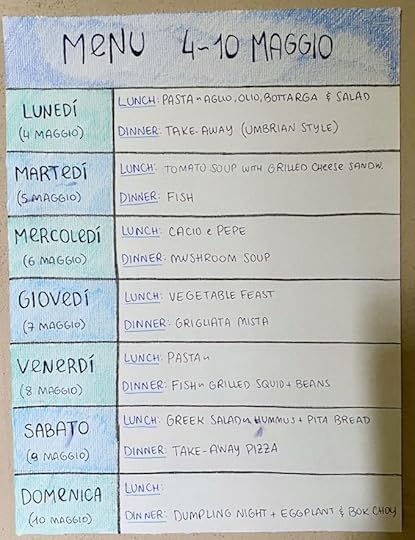 MENU 4-10 MAGGIO
LUNEDÍ
(4 MAGGIO)
LUNCH: PASTA ~ AGLIO, OLIO, BOTTARGA & SALAD
DINNER: TAKE-AWAY (UMBRIAN STYLE)
MARTEDÍ
(5 MAGGIO)
LUNCH: TOMATO SOUP WITH GRILLED CHEESE SANDW.
DINNER: FISH
MERCOLEDÍ
(6 MAGGIO)
LUNCH: CACIO e PEPE
DINNER: MUSHROOM SOUP
GIOVEDÍ
(7 MAGGIO)
LUNCH: VEGETABLE FEAST
DINNER: GRIGLIATA MISTA
VENERDÍ
(8 MAGGIO)
LUNCH: PASTA ~
DINNER: FISH ~ GRILLED SQUID + BEANS
SABATO
(9 MAGGIO)
LUNCH: GREEK SALAD ~ HUMMUS + PITA BREAD
DINNER: TAKE-AWAY PIZZA
DOMENICA
(10 MAGGIO)
LUNCH:
DINNER: DUMPLING NIGHT + EGGPLANT & BOK CHOY